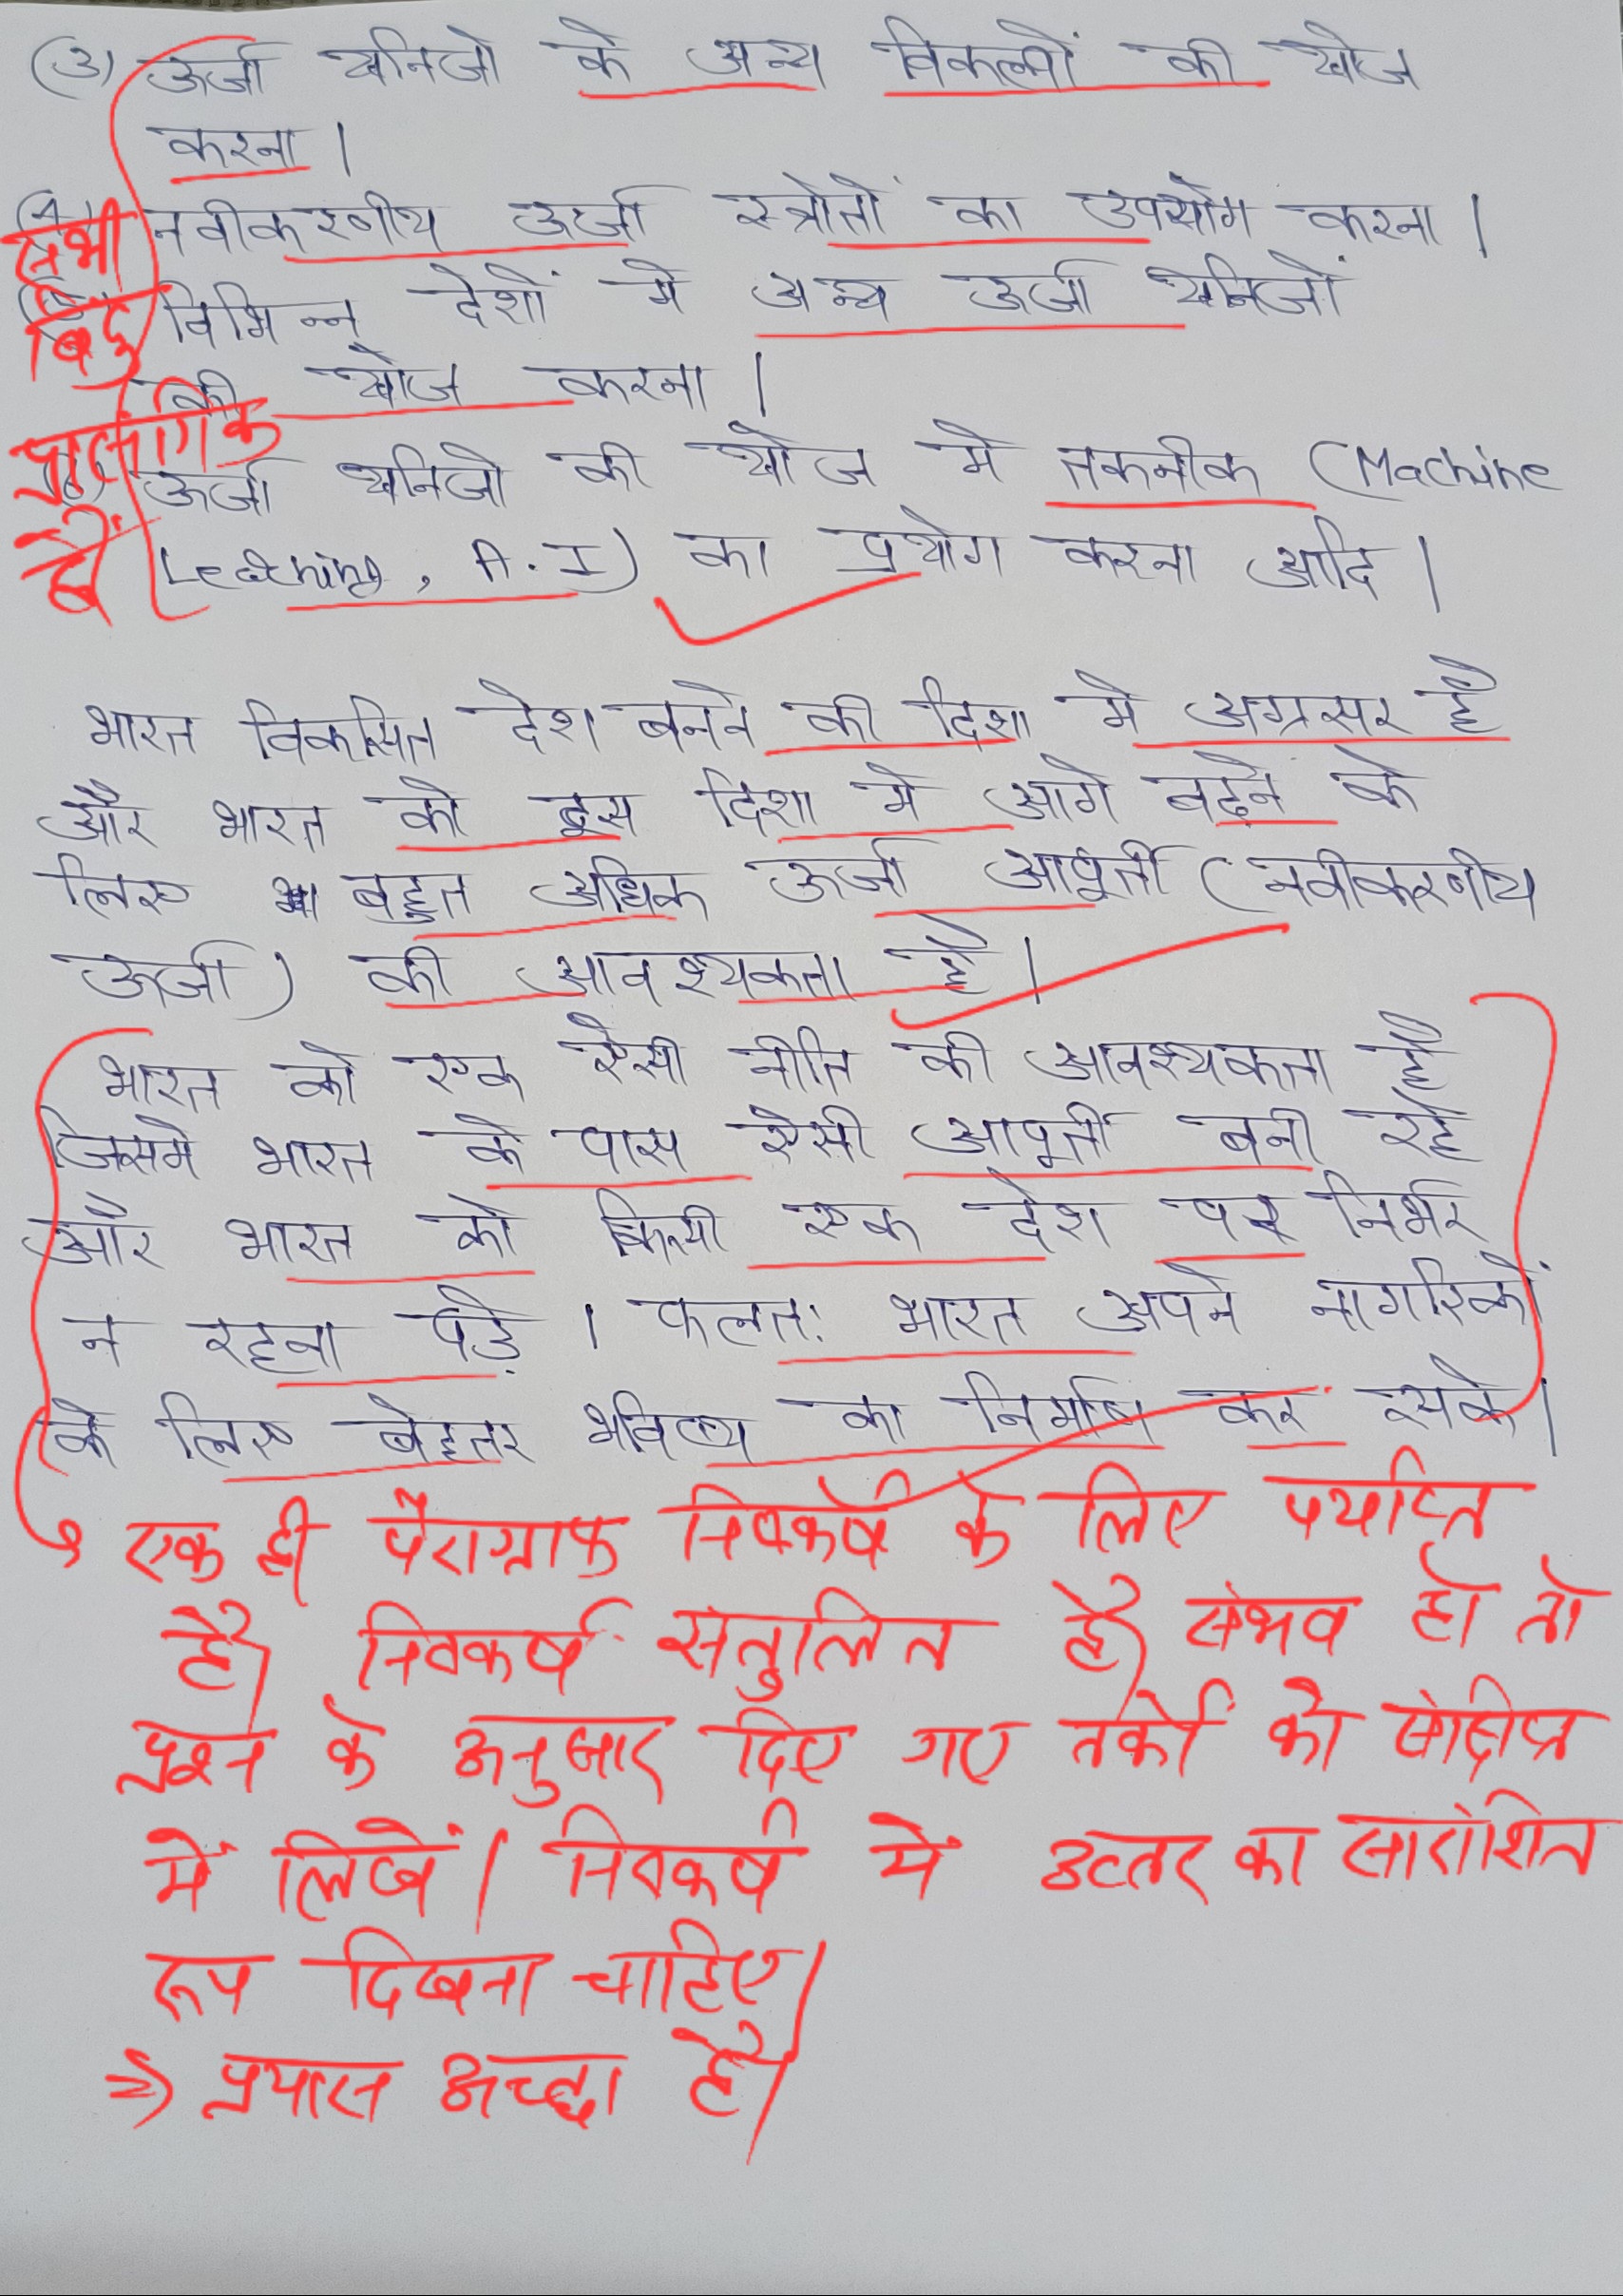 (3) ऊर्जा खनिजो के अन्य विकल्पों की खोज
करना |
नवीकरणीय ऊर्जा स्त्रोतों का उपयोग करना |
सभी
विभिन्न देशों मे अन्य ऊर्जा खनिजों
बिंदु
की खोज करना |
प्रासंगिक
ऊर्जा खनिजो की खोज मे तकनीक (Machine
हैं
Learning, A.I) का प्रयोग करना आदि |
भारत विकसित देश बनने की दिशा मे अग्रसर है
और भारत को इस दिशा मे आगे बढ़ने के
लिए बहुत अधिक ऊर्जा आपूर्ती (नवीकरणीय
ऊर्जा) की आवश्यकता है |
भारत को एक ऐसी नीति की आवश्यकता है
जिसमे भारत के पास ऐसी आपूर्ती बनी रहे
और भारत को किसी एक देश पर निर्भर
न रहना पड़े | फलतः भारत अपने नागरिकों
के लिए बेहतर भविष्य का निर्माण कर सके |
एक ही पैराग्राफ निष्कर्ष के लिए पर्याप्त
है। निष्कर्ष संतुलित है। संभव हो तो
प्रश्न के अनुसार दिए गए तर्कों को संक्षिप्त
में लिखें। निष्कर्ष में उत्तर का सारांशित
रूप दिखना चाहिए।
⇒ प्रयास अच्छा है।